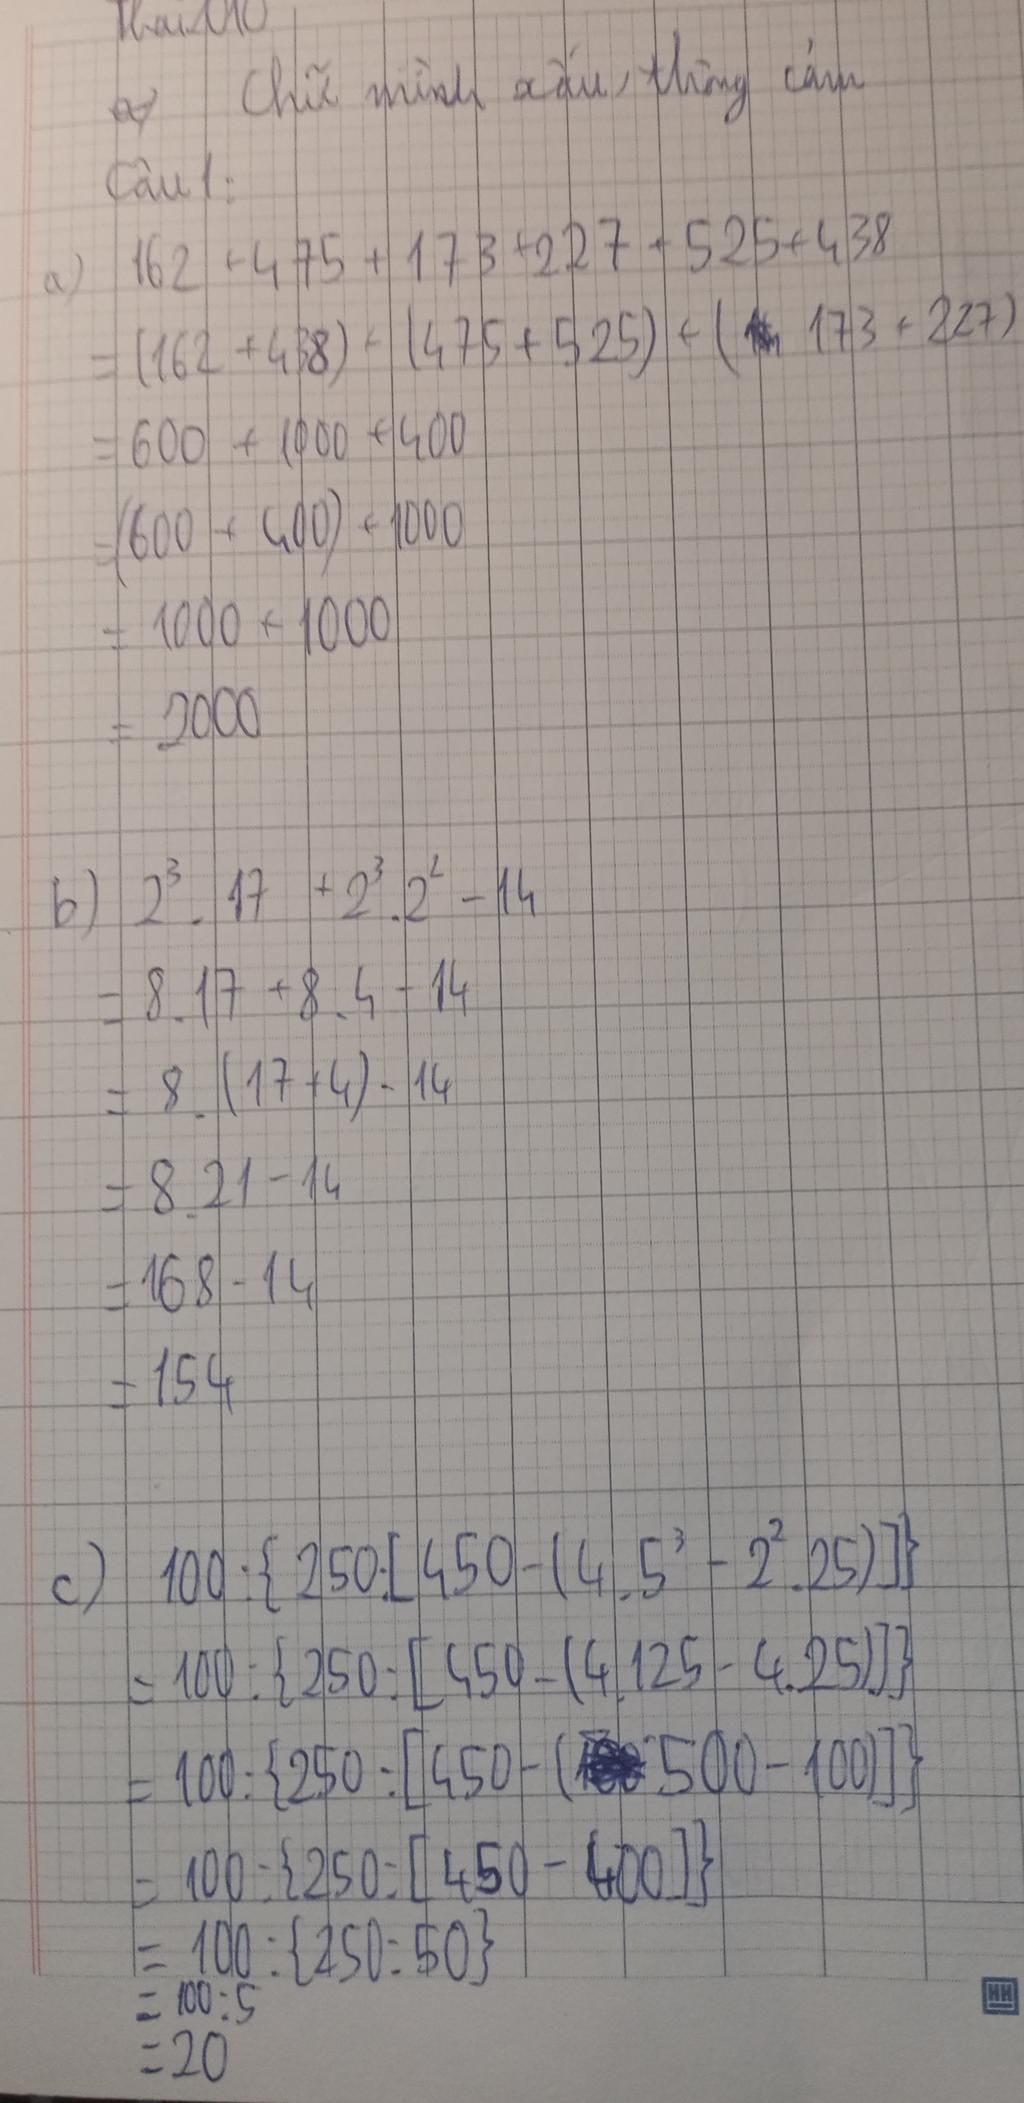 Chữ mình xấu, thông cảm
Câu 1:
a) 162 + 475 + 173 + 227 + 525 + 438
= (162 + 438) + (475 + 525) + ( 173 + 227)
= 600 + 1000 + 400
= (600 + 400) + 1000
= 1000 + 1000
= 2000
b) 2³ . 17 + 2³ . 2² - 14
= 8 . 17 + 8 . 4 - 14
= 8 . (17 + 4) - 14
= 8 . 21 - 14
= 168 - 14
= 154
c) 100 : { 250 : [ 450 - (4 . 5³ - 2² . 25)]}
= 100 : {250 : [450 - (4.125 - 4.25)]}
= 100 : {250 : [450 - ( 500 - 100)]}
= 100 : {250 : [450 - 400]}
= 100 : {250 : 50}
= 100 : 5
= 20
HH